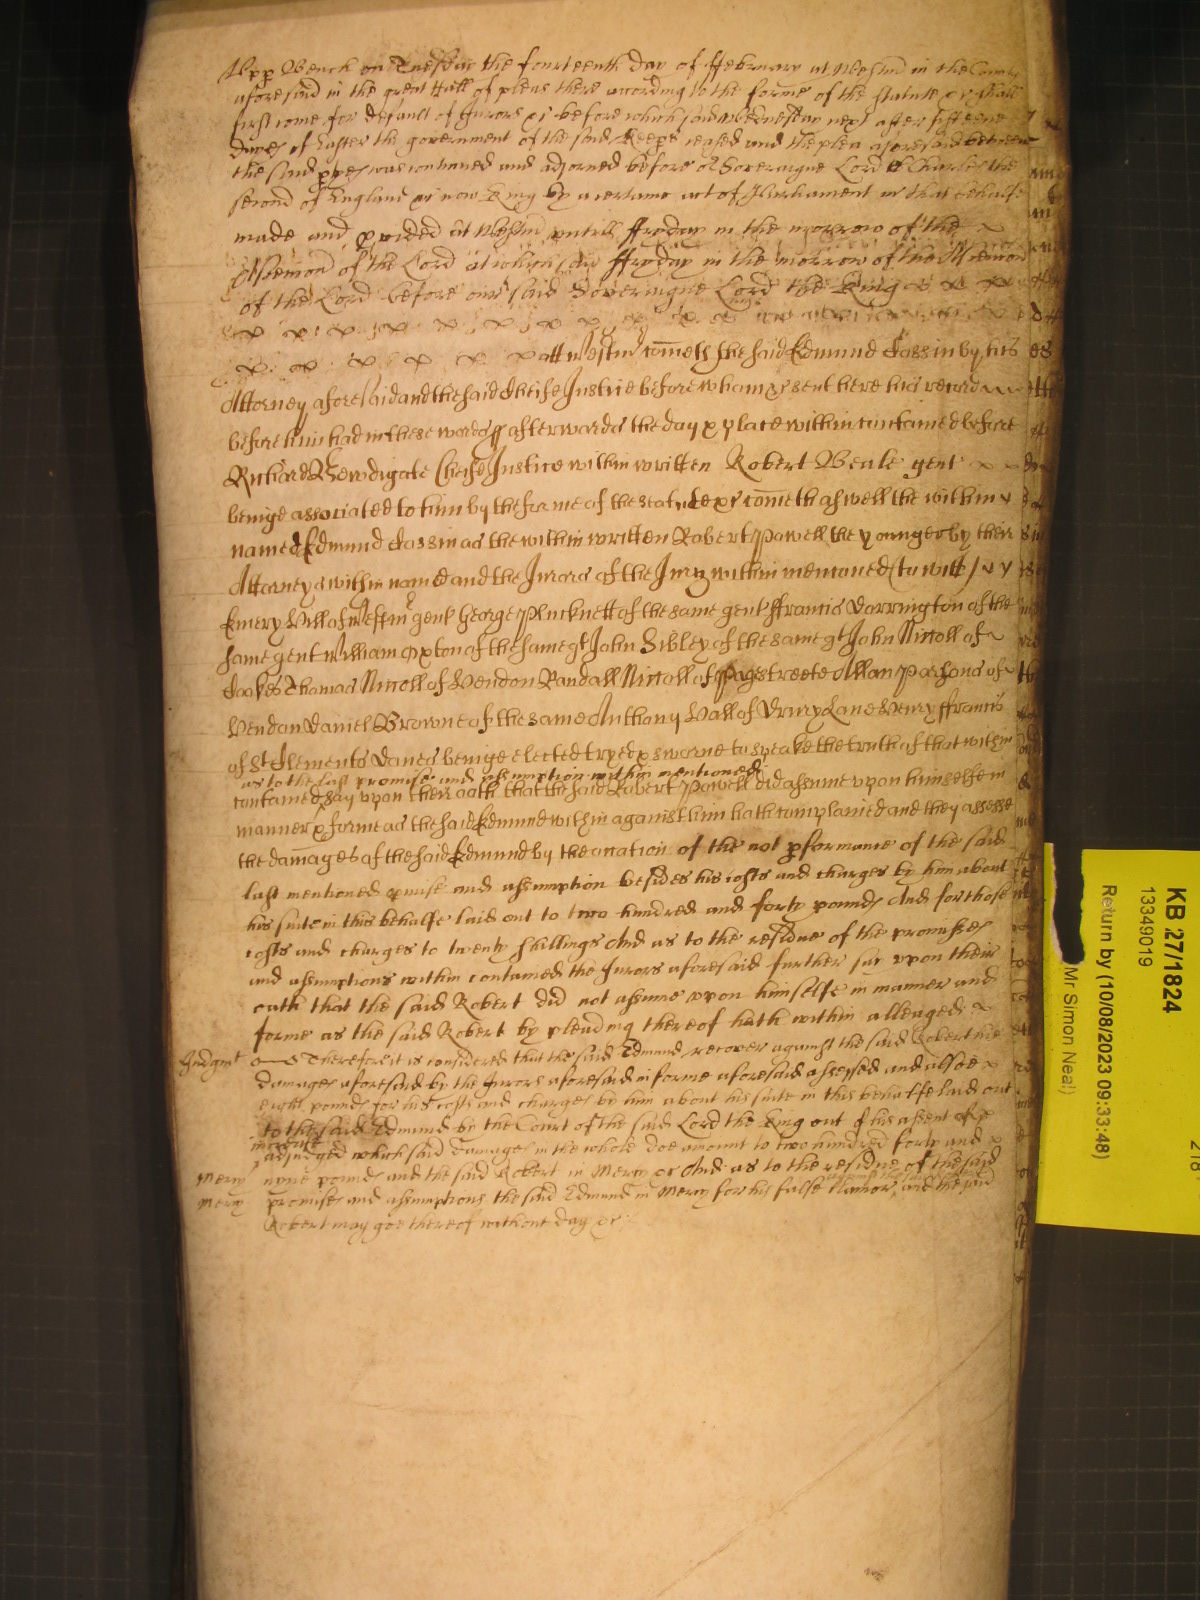 Upp Bench on Tuesday the fourteenth day of ffebruary at Westmr in the County
aforesaid in the great Hall of pleas there according to the forme of the statute &c shall
first come for default of Jurors &c before which said Wednesday next after fifteene
dayes of Easter the government of the said Keeps ceased and the plea aforesaid betweene
the said ptyes was continued and adjorned before or Soveraigne Lord Charles the
second of England &c now King by a certaine act of Parliament in that behalfe
made and pvided at Westmr untill ffryday in the morrow of the
Ascencon of the Lord at which said ffryday in the morrow of the Ascencon
of the Lord before our said Soveraigne Lord the King
att Westmr cometh the said Edmund Cassin by his
Attorney aforesaid and the said Cheife Justice before whom &c sent here his record
before him had in these words ss afterwards the day & place within contained before
Richard Newdigate Cheife Justice within written Robert Beale gent
beinge associated to him by the forme of the statute &c cometh aswell the within
named Edmund Cassin as the within written Robert Powell the younger by their
Attorneys within named and the Jurors of the Jury within menconed (to witt)
Emery Hill of Westmr gent George Plucknett of the same gent ffrancis Dorrington of the
same gent William Oxton of the same gt John Sibley of the same gt John Nicoll of
Cookes Thomas Nicoll of Hendon Randall Nicoll of Pagstreete Allan Parsons of
Hendon Daniel Browne of the same Anthony Hall of Drury Lane Henry ffrancis
of St Clements Danes beinge elected tryed & sworne to speake the truth of that within
as to the last promise and assumption within mentioned
contained say upon their oath that the said Robert Powell did assume upon himselfe in
manner & forme as the said Edmund within against him hath complained and they assesse
the damages of the said Edmund by the occation of the not pformance of the said
last mentioned pmise and assumption besides his costs and charges by him about
his suite in this behalfe laid out to two hundred and forty pounds And for those
costs and charges to twenty shillings And as to the residue of the promisses
and assumptions within contained the Jurors aforesaid further say upon their
oath that the said Robert did not assume upon himselfe in manner and
forme as the said Robert by pleading thereof hath within alleaged
Judgmt Therefore it is considered that the said Edmund recover against the said Robert his
damages aforesaid by the Jurors aforesaid in forme aforesaid assessed and alsoe
eight pounds for his costs and charges by him about his suite in this behalfe laid out
to the said Edmund by the Court of the said Lord the King out of his assent of
increase
adjudged which said damages in the whole doe amount to two hundred forty and
Mercy nyne pounds and the said Robert in Mercy &c And as to the residue of the said
Mercy promises and assumptions the said Edmund in Mercy for his false Clamor and the said
Robert may goe thereof without day &c
KB 27/1824
13349019
Return by (10/08/2023 09:33:48)
Mr Simon Neal